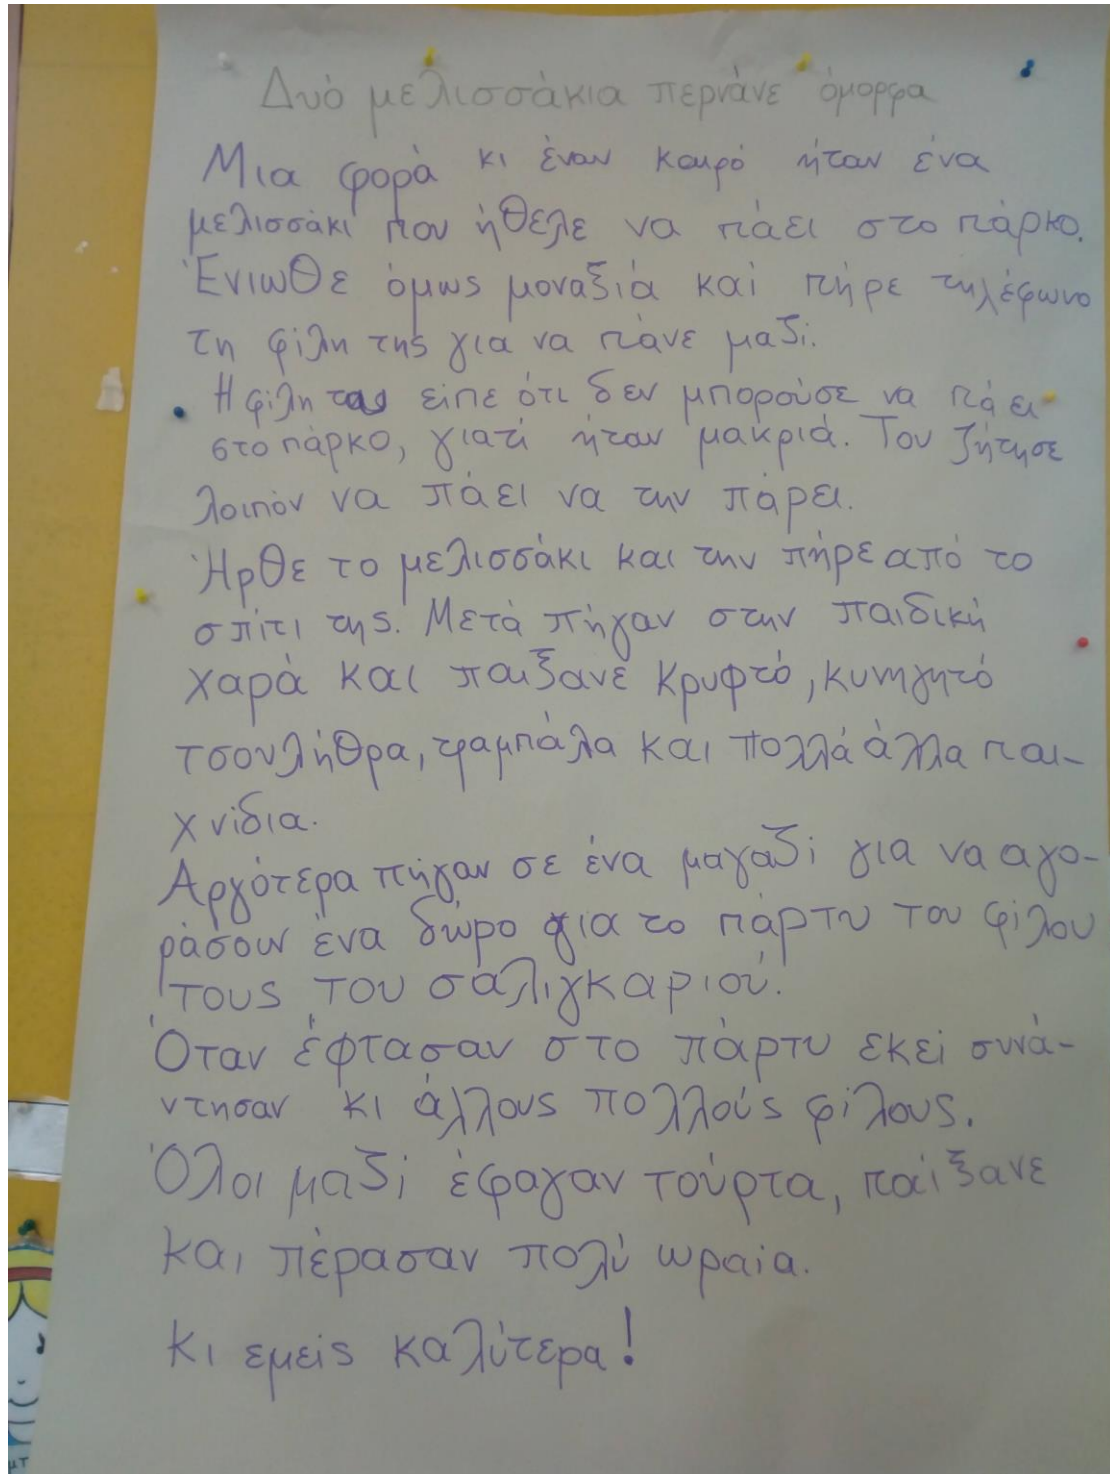 Δυό μελισσάκια περνάνε όμορφα
Μια φορά κι έναν καιρό ήταν ένα
μελισσάκι που ήθελε να πάει στο πάρκο.
Ένιωθε όμως μοναξιά και πήρε τηλέφωνο
τη φίλη της για να πάνε μαζί.
Η φίλη του είπε ότι δεν μπορούσε να πάει
στο πάρκο, γιατί ήταν μακριά. Του ζήτησε
λοιπόν να πάει να την πάρει.
Ήρθε το μελισσάκι και την πήρε από το
σπίτι της. Μετά πήγαν στην παιδική
χαρά και παιξανε κρυφτό, κυνηγητό
τσουλήθρα, τραμπάλα και πολλά άλλα παι-
χνίδια.
Αργότερα πήγαν σε ένα μαγαζί για να αγο-
ράσουν ένα δώρο για το πάρτυ του φίλου
τους του σαλιγκαριού.
Όταν έφτασαν στο πάρτυ εκεί συνά-
ντησαν κι άλλους πολλούς φίλους.
Όλοι μαζί έφαγαν τούρτα, παίξανε
και πέρασαν πολύ ωραία.
Κι εμείς καλύτερα!
μτ